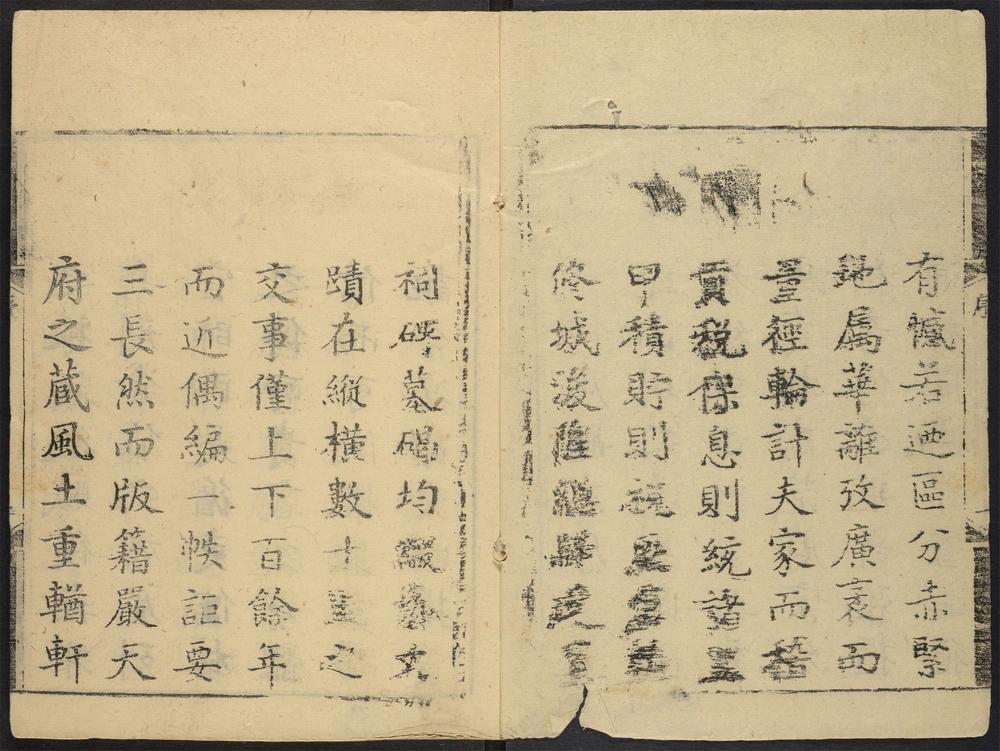 有憾若迺區分赤緊
地屬華離攷廣袤而
量徑輪計夫家而稽
貢税保息則統諸
甲積貯則
修城浚隍
祠碑墓碣均綴藝文
蹟在縱橫數十里之
交事僅上下百餘年
而近偶編一帙詎要
三長然而版籍嚴天
府之蔵風土重輶軒
序